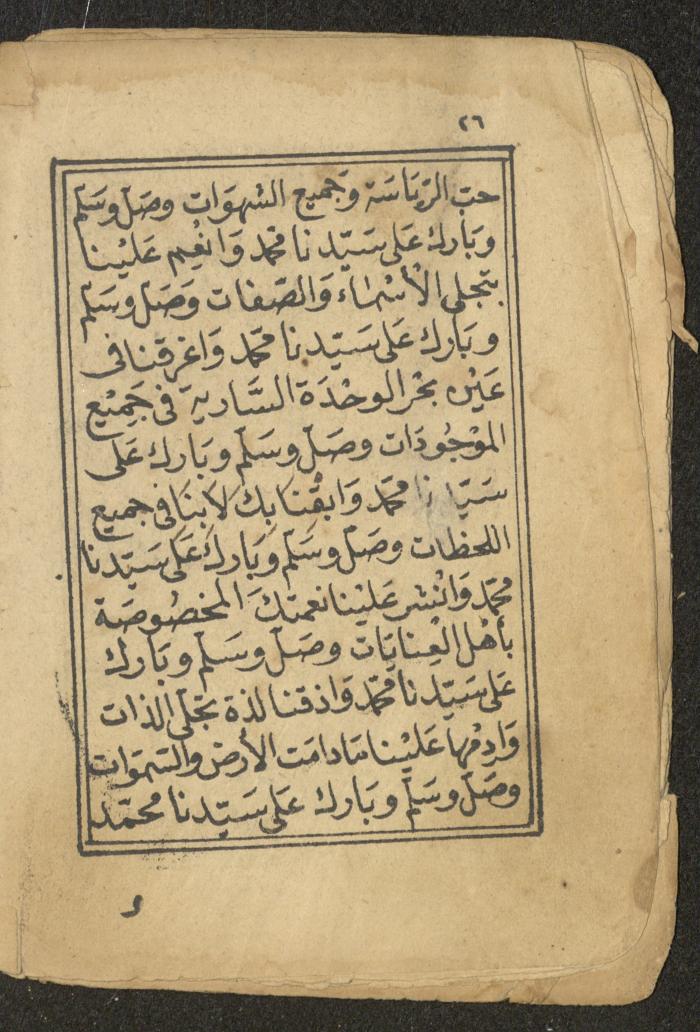 ٢٦
حبّ الرّيَاسَة وَجميع الشهوَات وصَلّ وسَلّم
وبَارك عَلى سَيّدنا محمّد وَانْعِم عَليْنا
بتجلى الْأسْمَاء وَالصّفات وَصَلّ وسَلّم
وبَارك عَلى سَيّدنا محمّد وَاغرقنا فى
عَيْن بحْر الوحْدَة السَّارية فى جَمِيْع
الموْجُودَات وصَلّ وسَلّم وبَارك عَلى
سَيّدنا محمّد وَابقْنَا بك لَا بنَا فى جميع
اللحظات وصَلّ وسَلّم وبَارك عَلى سَيّدنا
محمّد وَانْشر عَليْنا نعمتكَ المخصُوصَة
بأهْل الْعِنايَات وصَلّ وسَلّم وبَارك
عَلى سَيّدنا محمّد وَاذقنا لذة تجَلّى الذات
وَادِمْها عَليْنا مَادامَت الأرْض والسّموَات
وصَلّ وسَلّم وبَارك عَلى سَيّدنا محمّد